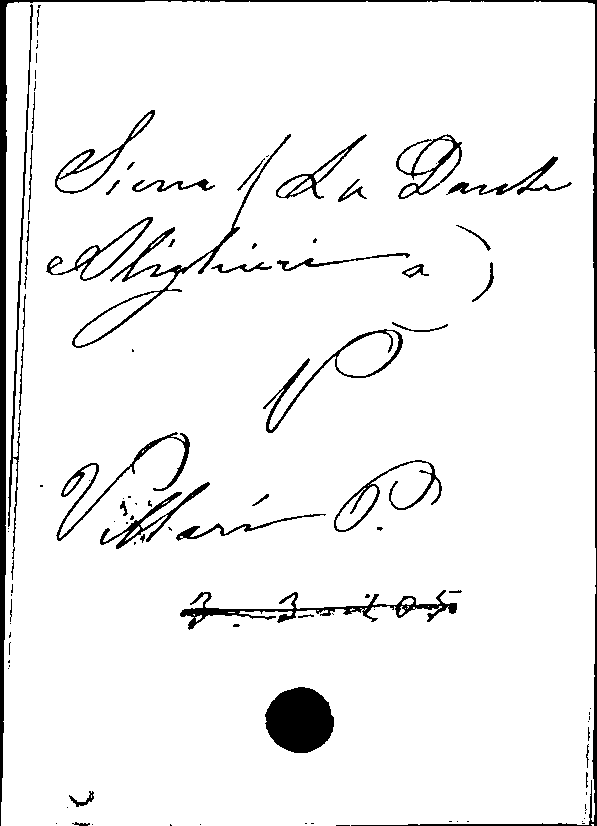 Siena / (La Dante
Alighieri a)
V
Villari P.
3. 3 105